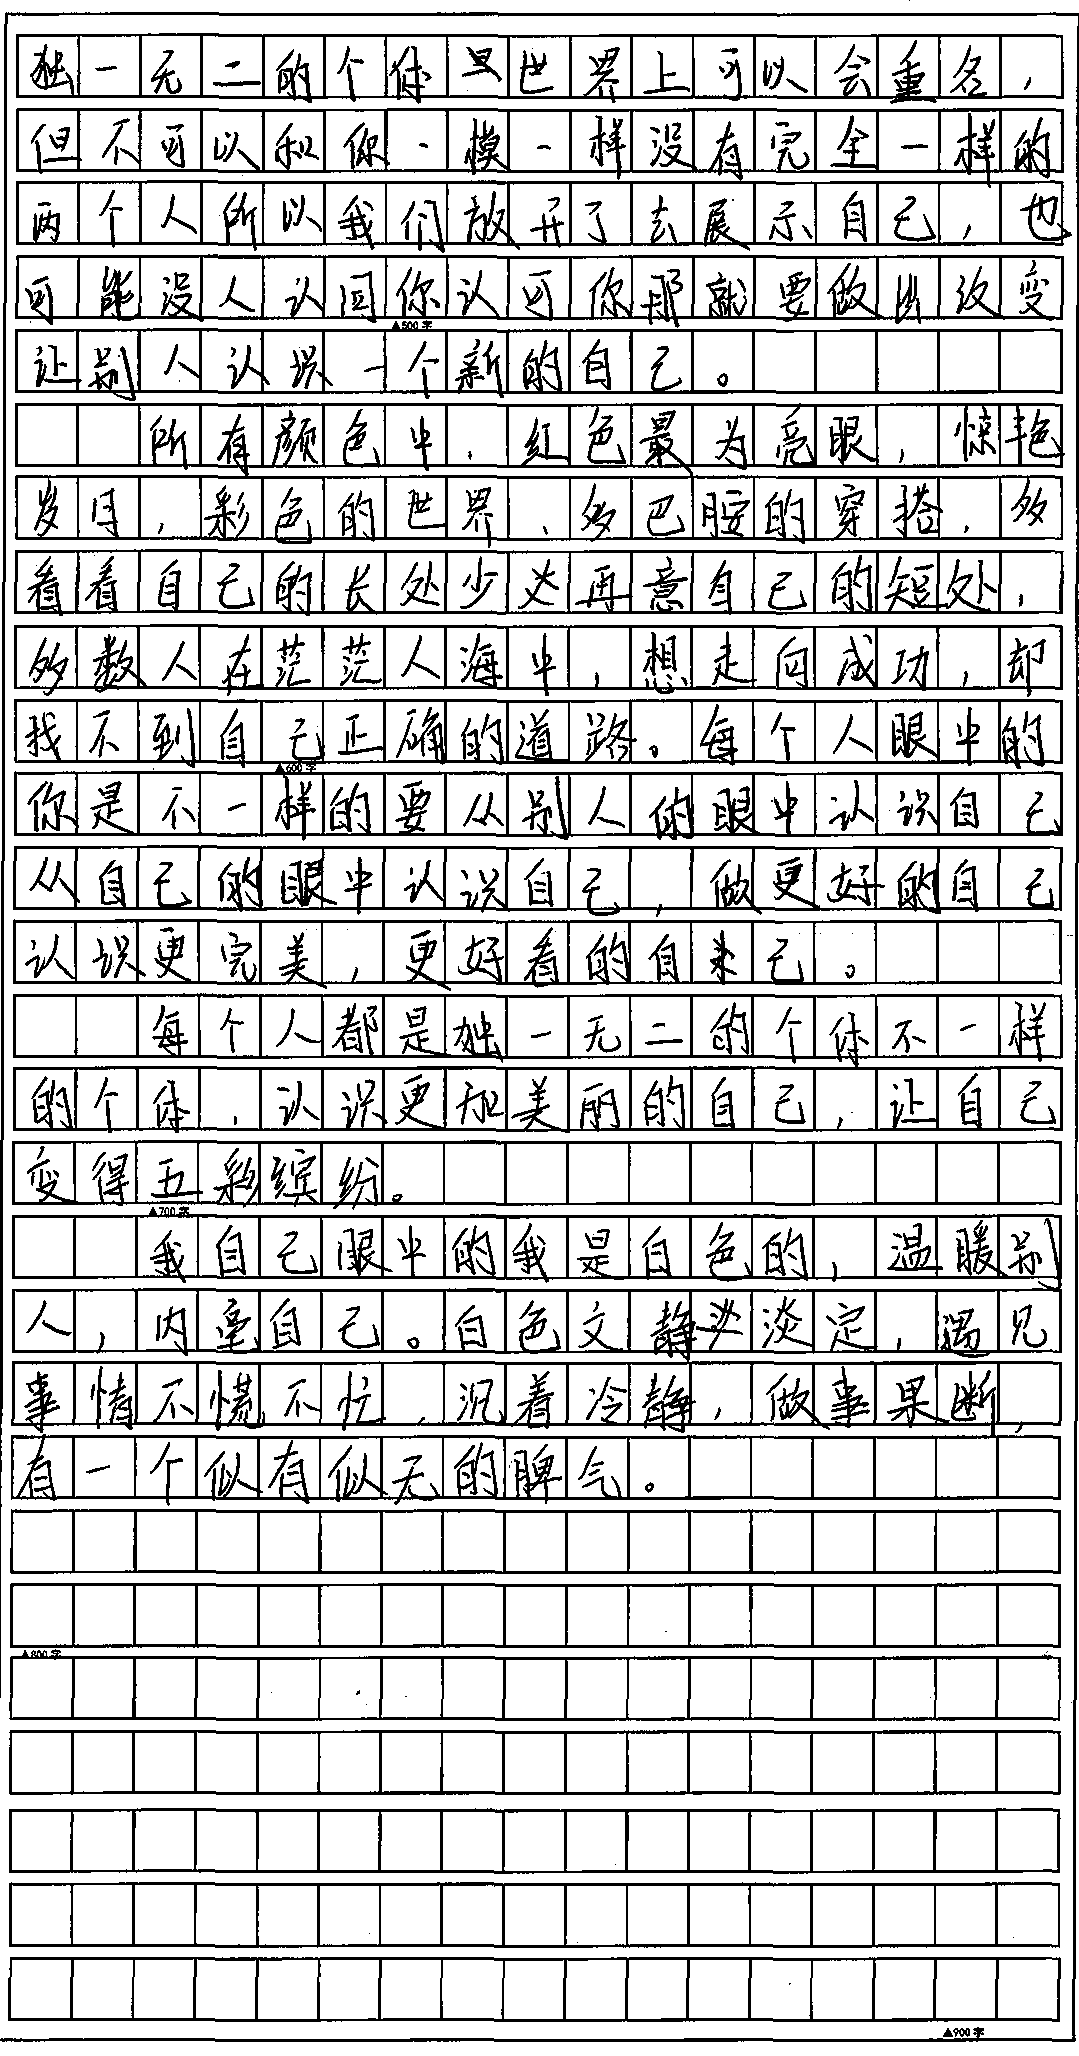 独一无二的个体世界上可以会重名，
但不可以和你一模一样没有完全一样的
两个人所以我们放开了去展示自己，也
可能没人认回你认可你那就要做出改变
▲500字
让别人认识一个新的自己。
所有颜色中，红色最为亮眼，惊艳
岁月，彩色的世界，多巴胺的穿搭，多
看看自己的长处少再意自己的短处，
多数人在茫茫人海中，想走向成功，却
找不到自己正确的道路。每个人眼中的
▲600字
你是不一样的要从别人的眼中认识自己
从自己的眼中认识自己，做更好的自己
认识更完美，更好看的自己。
每个人都是独一无二的个体不一样
的个体，认识更加美丽的自己，让自己
变得五彩缤纷。
▲700字
我自己眼中的我是白色的，温暖别
人，内亮自己。白色文静淡定，遇见
事情不慌不忙，沉着冷静，做事果断，
有一个似有似无的脾气。
▲800字
▲900字